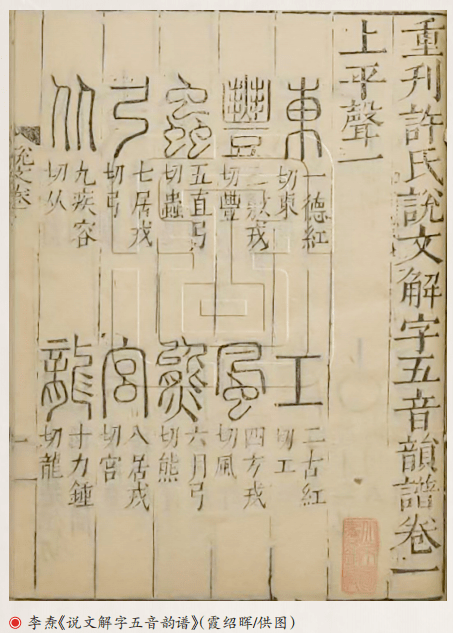 重刊許氏說文解字五音韻譜卷一
上平聲一
東
一德紅
切東
工
二古紅
切工
豐
敷戎
切豐
風
四方戎
切風
蟲
五直弓
切蟲
熊
六月弓
切熊
弓
七居戎
切弓
宮
八居戎
切宮
从
九疾容
切从
龍
十力鍾
切龍
說文卷一
一
李焘《说文解字五音韵谱》(霞绍晖/供图)